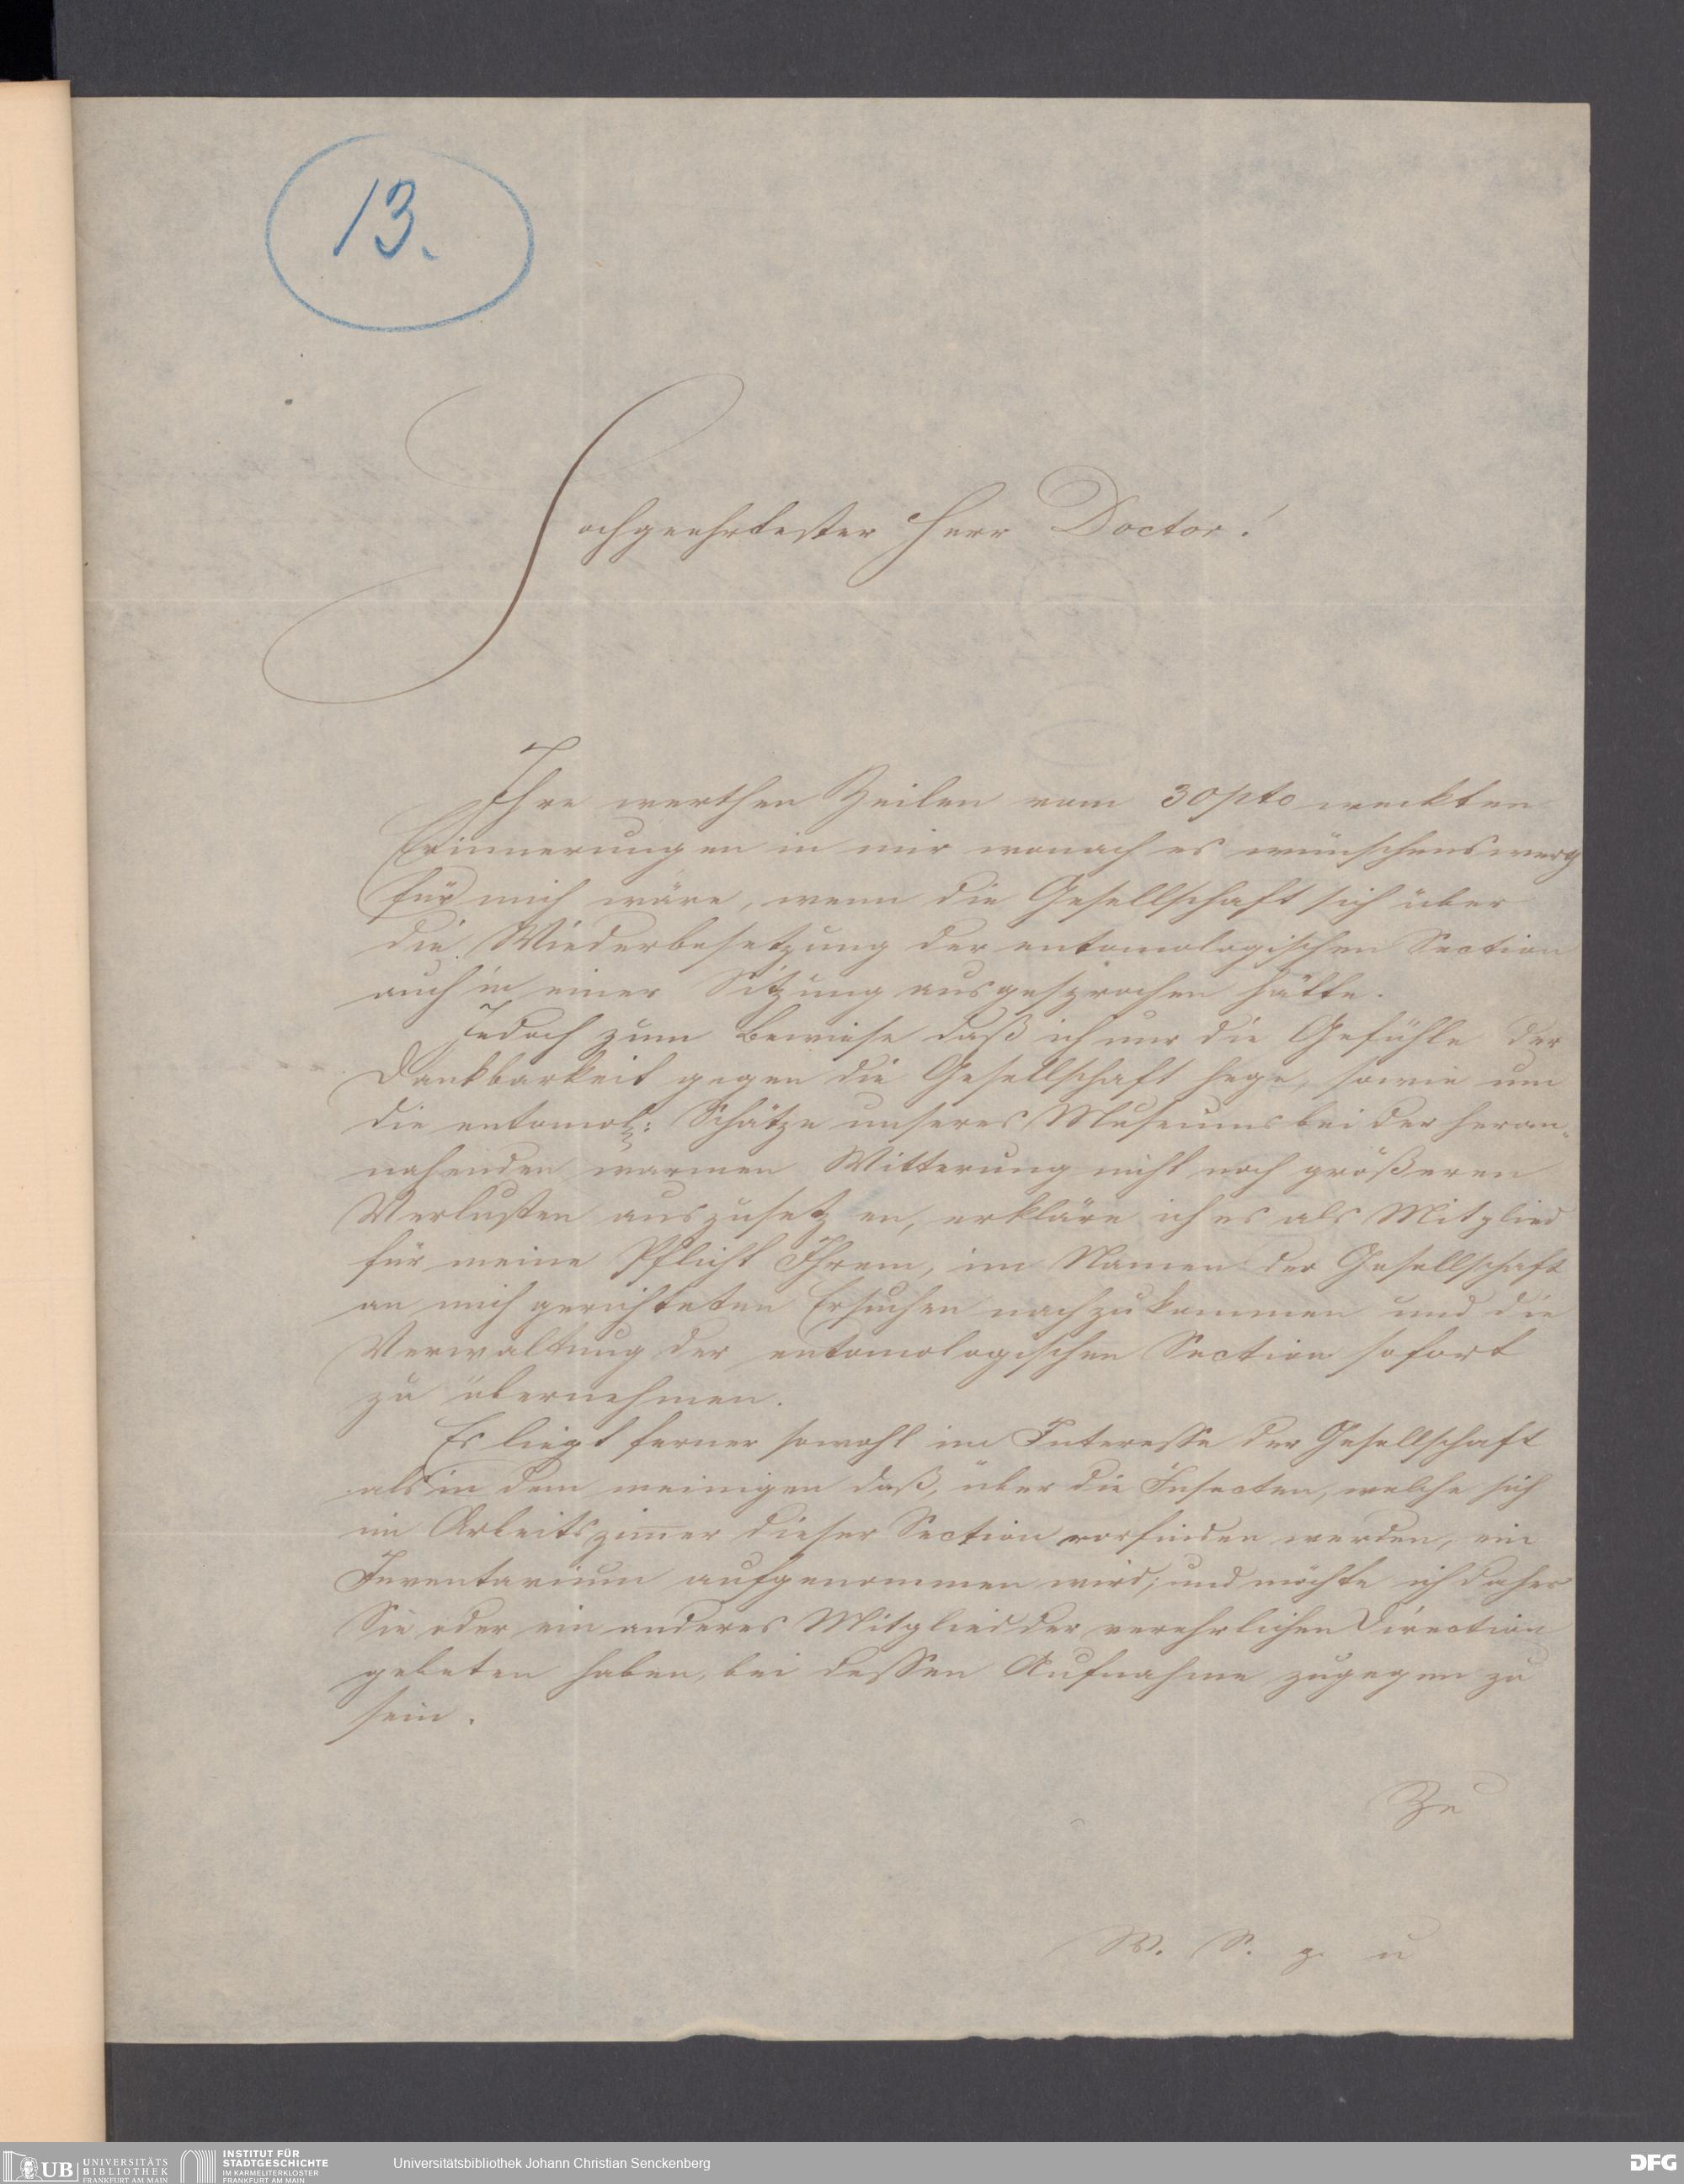 13.
Hochgeehrtester Herr Doctor!
Ihre werthen Zeilen vom 30 pto weckten
Erinnerungen in mir wonach es wünschenswerth
für mich wäre, wenn die Gesellschaft sich über
die Wiederbesetzung der entomologischen Section
auch in einer Sitzung ausgesprochen hätte.
Jedoch zum Beweise daß ich nur die Gefühle der
Dankbarkeit gegen die Gesellschaft hege, sowie um
die entomol: Schätze unseres Museums bei der heran-
nahenden warmen Witterung nicht noch größeren
Verlusten auszusetzen, erkläre ich es als Mitglied
für meine Pflicht Ihrem, im Namen der Gesellschaft
an mich gerichteten Ersuchen nachzukommen und die
Verwaltung der entomologischen Section sofort
zu übernehmen.
Es liegt ferner sowohl im Interesse der Gesellschaft
als in dem meinigen daß, über die Insecten, welche sich
im Arbeitszimer dieser Section vorfinden werden, ein
Inventarium aufgenommen wird; und möchte ich daher
Sie oder ein anderes Mitglied der verehrlichen Direction
gebeten haben, bei dessen Aufnahme zugegen zu
sein.
Zu
W. S. g. u
UB UNIVERSITÄTS
BIBLIOTHEK
FRANKFURT AM MAIN
INSTITUT FÜR
STADTGESCHICHTE
IM KARMELITERKLOSTER
FRANKFURT AM MAIN
Universitätsbibliothek Johann Christian Senckenberg
DFG